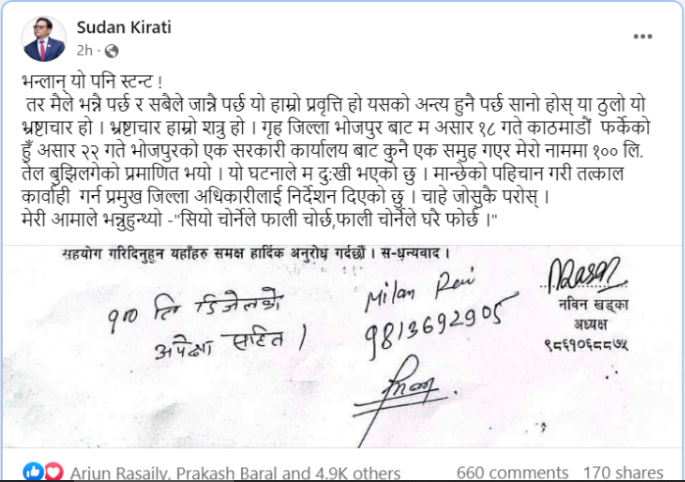 Sudan Kirati
2h
भन्लान् यो पनि स्टन्ट !
तर मैले भन्नै पर्छ र सबैले जान्नै पर्छ यो हाम्रो प्रवृत्ति हो यसको अन्त्य हुनै पर्छ सानो होस् या ठुलो यो
भ्रष्टाचार हो । भ्रष्टाचार हाम्रो शत्रु हो । गृह जिल्ला भोजपुर बाट म असार १८ गते काठमाडौं फर्केको
हुँ असार २२ गते भोजपुरको एक सरकारी कार्यालय बाट कुनै एक समुह गएर मेरो नाममा १०० लि.
तेल बुझिलगेको प्रमाणित भयो । यो घटनाले म दुःखी भएको छु । मान्छेको पहिचान गरी तत्काल
कार्वाही गर्न प्रमुख जिल्ला अधिकारीलाई निर्देशन दिएको छु । चाहे जोसुकै परोस् ।
मेरी आमाले भन्नुहुन्थ्यो -"सियो चोर्नेले फाली चोर्छ,फाली चोर्नेले घरै फोर्छ ।"
सहयोग गरिदिनुहुन यहाँहरु समक्ष हार्दिक अनुरोध गर्दछौं । स-धन्यवाद ।
१०० लि डिजेलको
अपेक्षा सहित ।
Milan Rai
9813692905
नबिन खड्का
अध्यक्ष
९८६१०६८८७५
Arjun Rasaily, Prakash Baral and 4.9K others
660 comments 170 shares